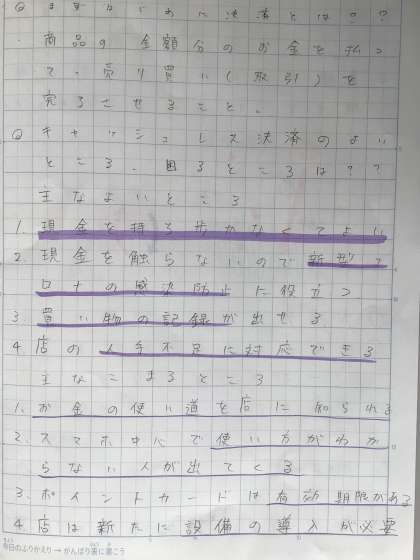 Q まずはじめに決済とは??
・商品の金額分のお金を払っ
て、売り買い(取引)を
完了させること。
Q キャッシュレス決済のよい
ところ、困るところは??
主なよいところ
1. 現金を持ち歩かなくてよい
2. 現金を触らないので新型コ
ロナの感染防止に役立つ
3 買い物の記録が出せる
4 店の人手不足に対応できる
主なこまるところ
1. お金の使い道を店に知られる
2. スマホ中心で使い方がわか
らない人が出てくる
3. ポイントカードは有効期限がある
4 店は新たに設備の導入が必要
今日のふりかえり→がんばり表に書こう